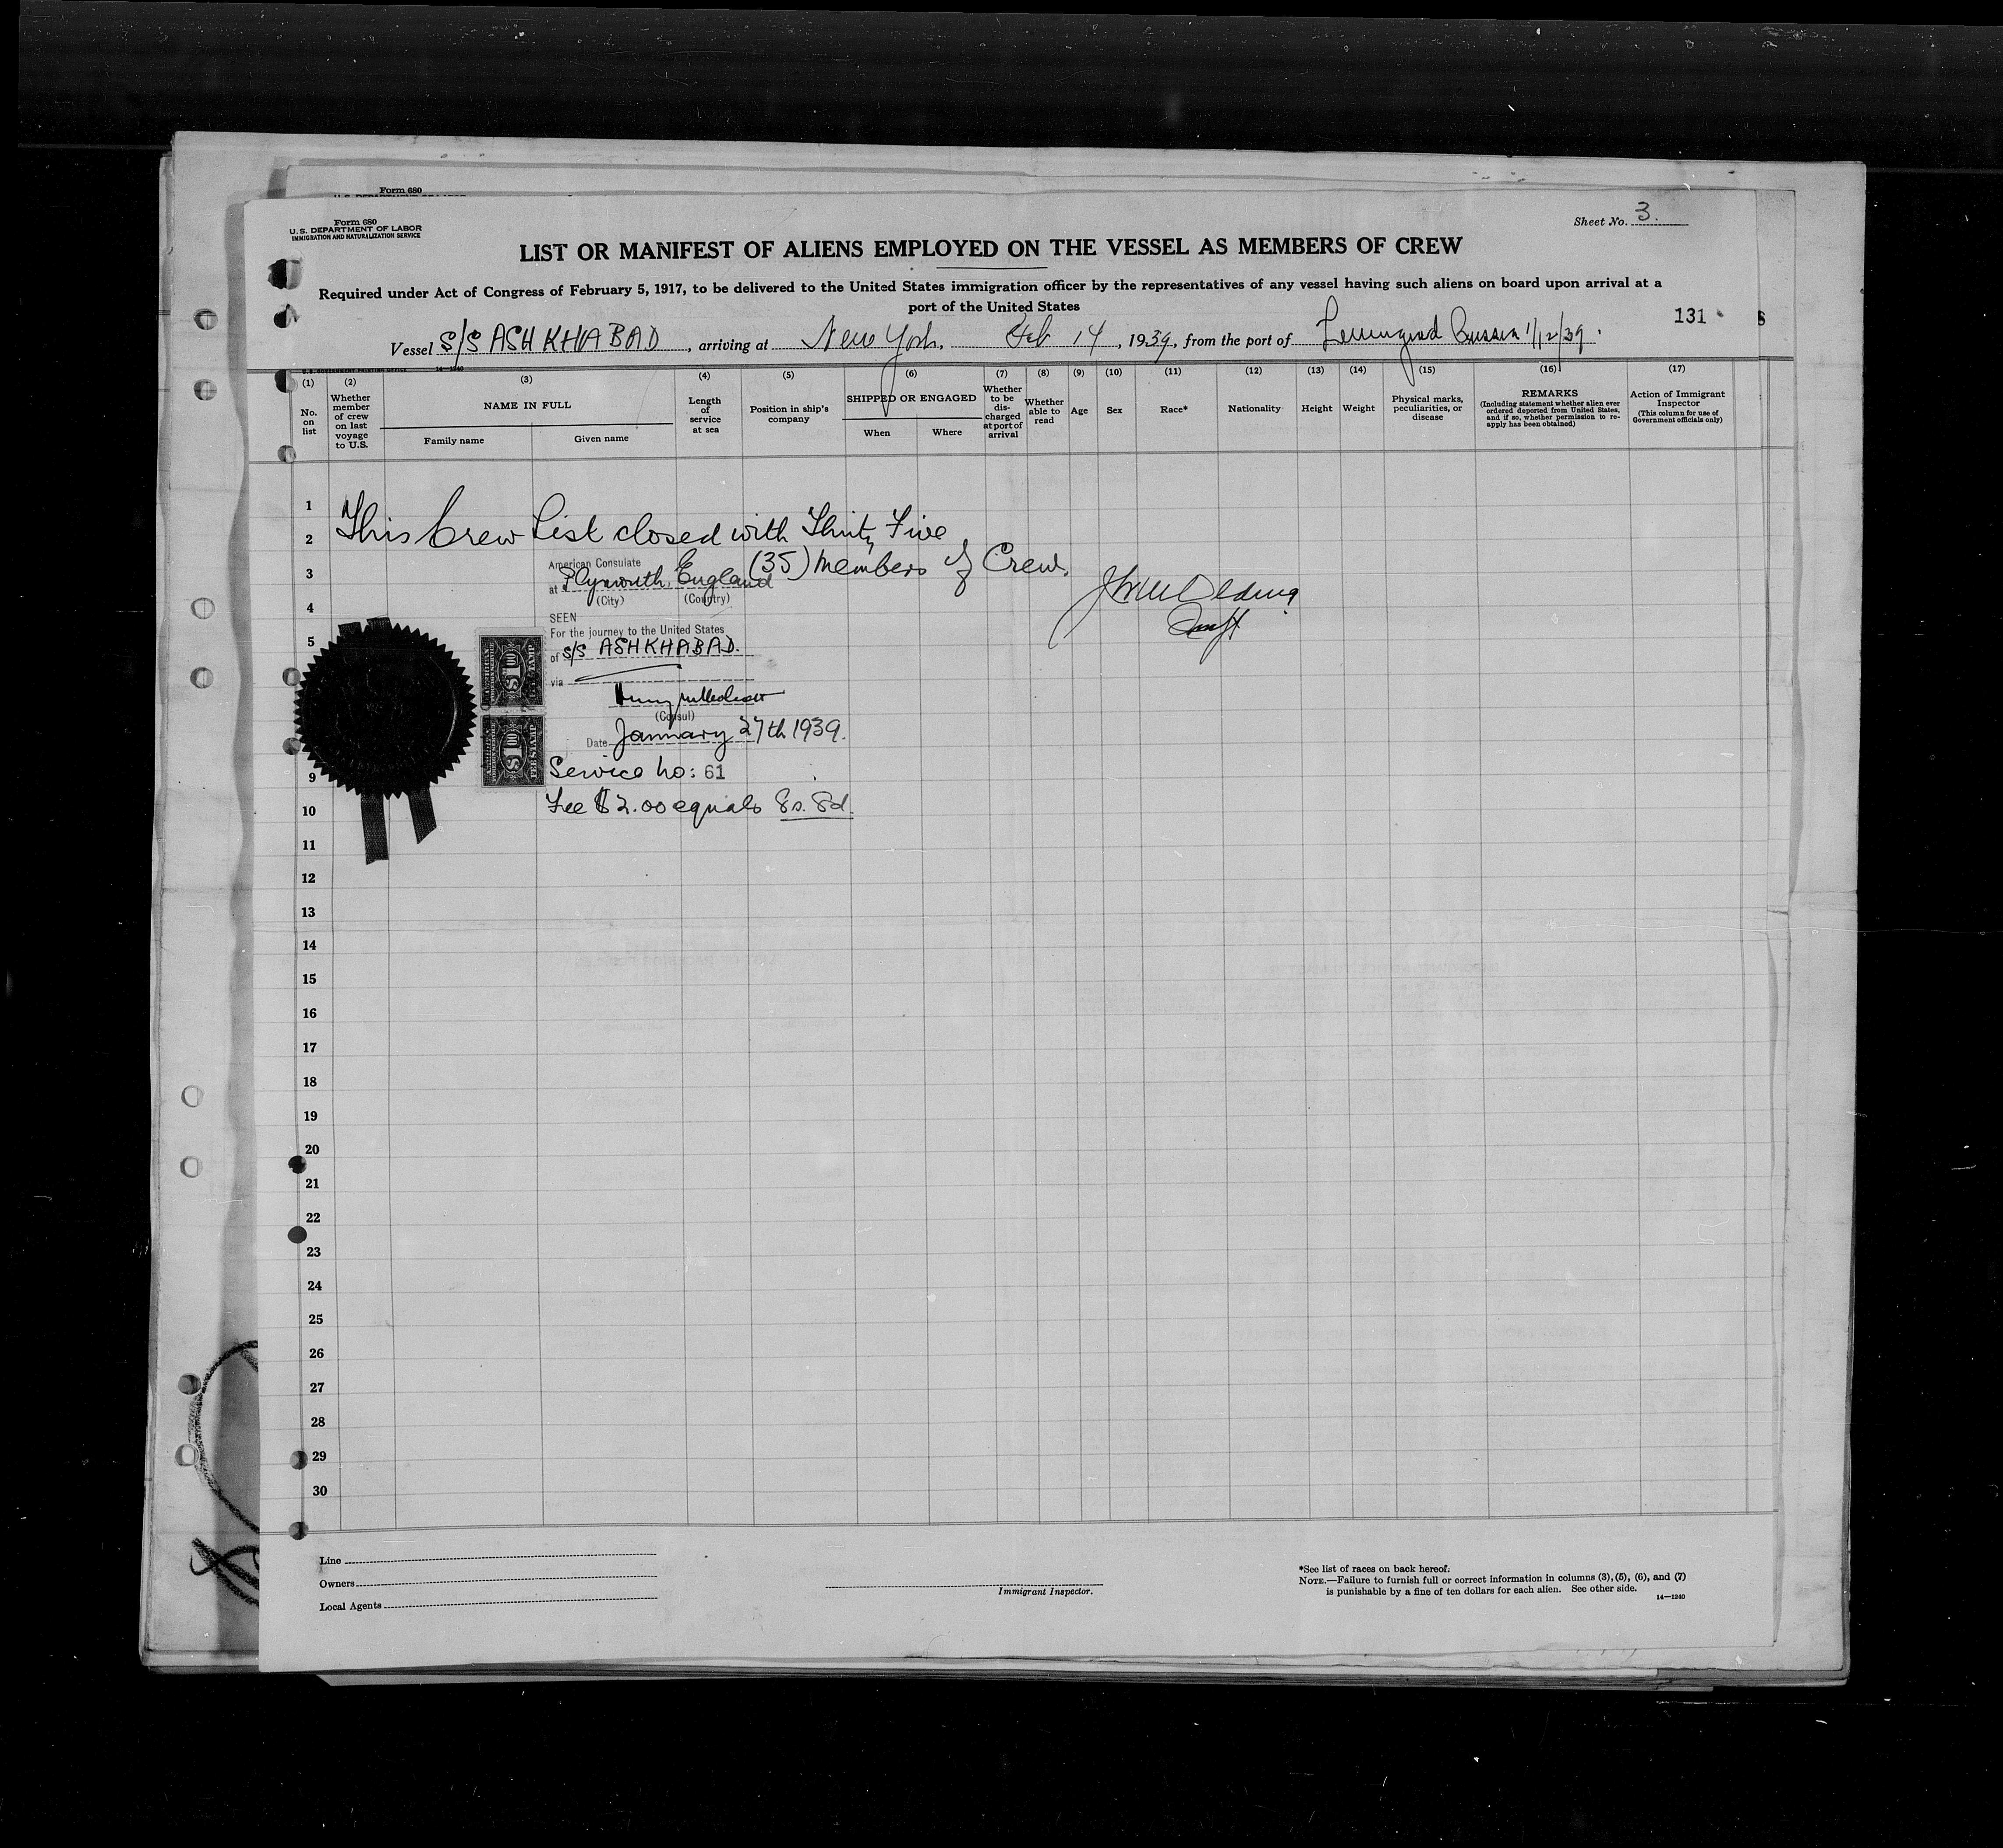 Form 680
Form 680
U.S. DEPARTMENT OF LABOR
IMMIGRATION AND NATURALIZATION SERVICE
Sheet No. 3.
LIST OR MANIFEST OF ALIENS EMPLOYED ON THE VESSEL AS MEMBERS OF CREW
Required under Act of Congress of February 5, 1917, to be delivered to the United States immigration officer by the representatives of any vessel having such aliens on board upon arrival at a
port of the United States
131
Vessel S/S ASHKHABAD, arriving at New York, Feb 14, 1939, from the port of Leningrad Russia 1/12/39.
U.S. GOVERNMENT PRINTING OFFICE 14—1240
(1) (2) (3) (4) (5) (6) (7) (8) (9) (10) (11) (12) (13) (14) (15) (16) (17)
No. on list
Whether member of crew on last voyage to U.S.
NAME IN FULL
Family name
Given name
Length of service at sea
Position in ship's company
SHIPPED OR ENGAGED
When
Where
Whether to be discharged at port of arrival
Whether able to read
Age
Sex
Race*
Nationality
Height
Weight
Physical marks, peculiarities, or disease
REMARKS
(Including statement whether alien ever ordered deported from United States, and if so, whether permission to reapply has been obtained)
Action of Immigrant Inspector
(This column for use of Government officials only)
1
This Crew List closed with Thirty Five
2
(35) members of Crew.
3
American Consulate
at Plymouth, England
(City) (Country)
4
SEEN
For the journey to the United States
5
of S/S ASHKHABAD.
via
(Consul)
Date January 27th 1939.
9
Service No: 61
10
Fee $2.00 equals 8s. 8d.
$1.00
FEE STAMP
$1.00
FEE STAMP
11
12
13
14
15
16
17
18
19
20
21
22
23
24
25
26
27
28
29
30
Line
Owners
Local Agents
Immigrant Inspector.
*See list of races on back hereof.
NOTE.—Failure to furnish full or correct information in columns (3), (5), (6), and (7)
is punishable by a fine of ten dollars for each alien. See other side.
14—1240